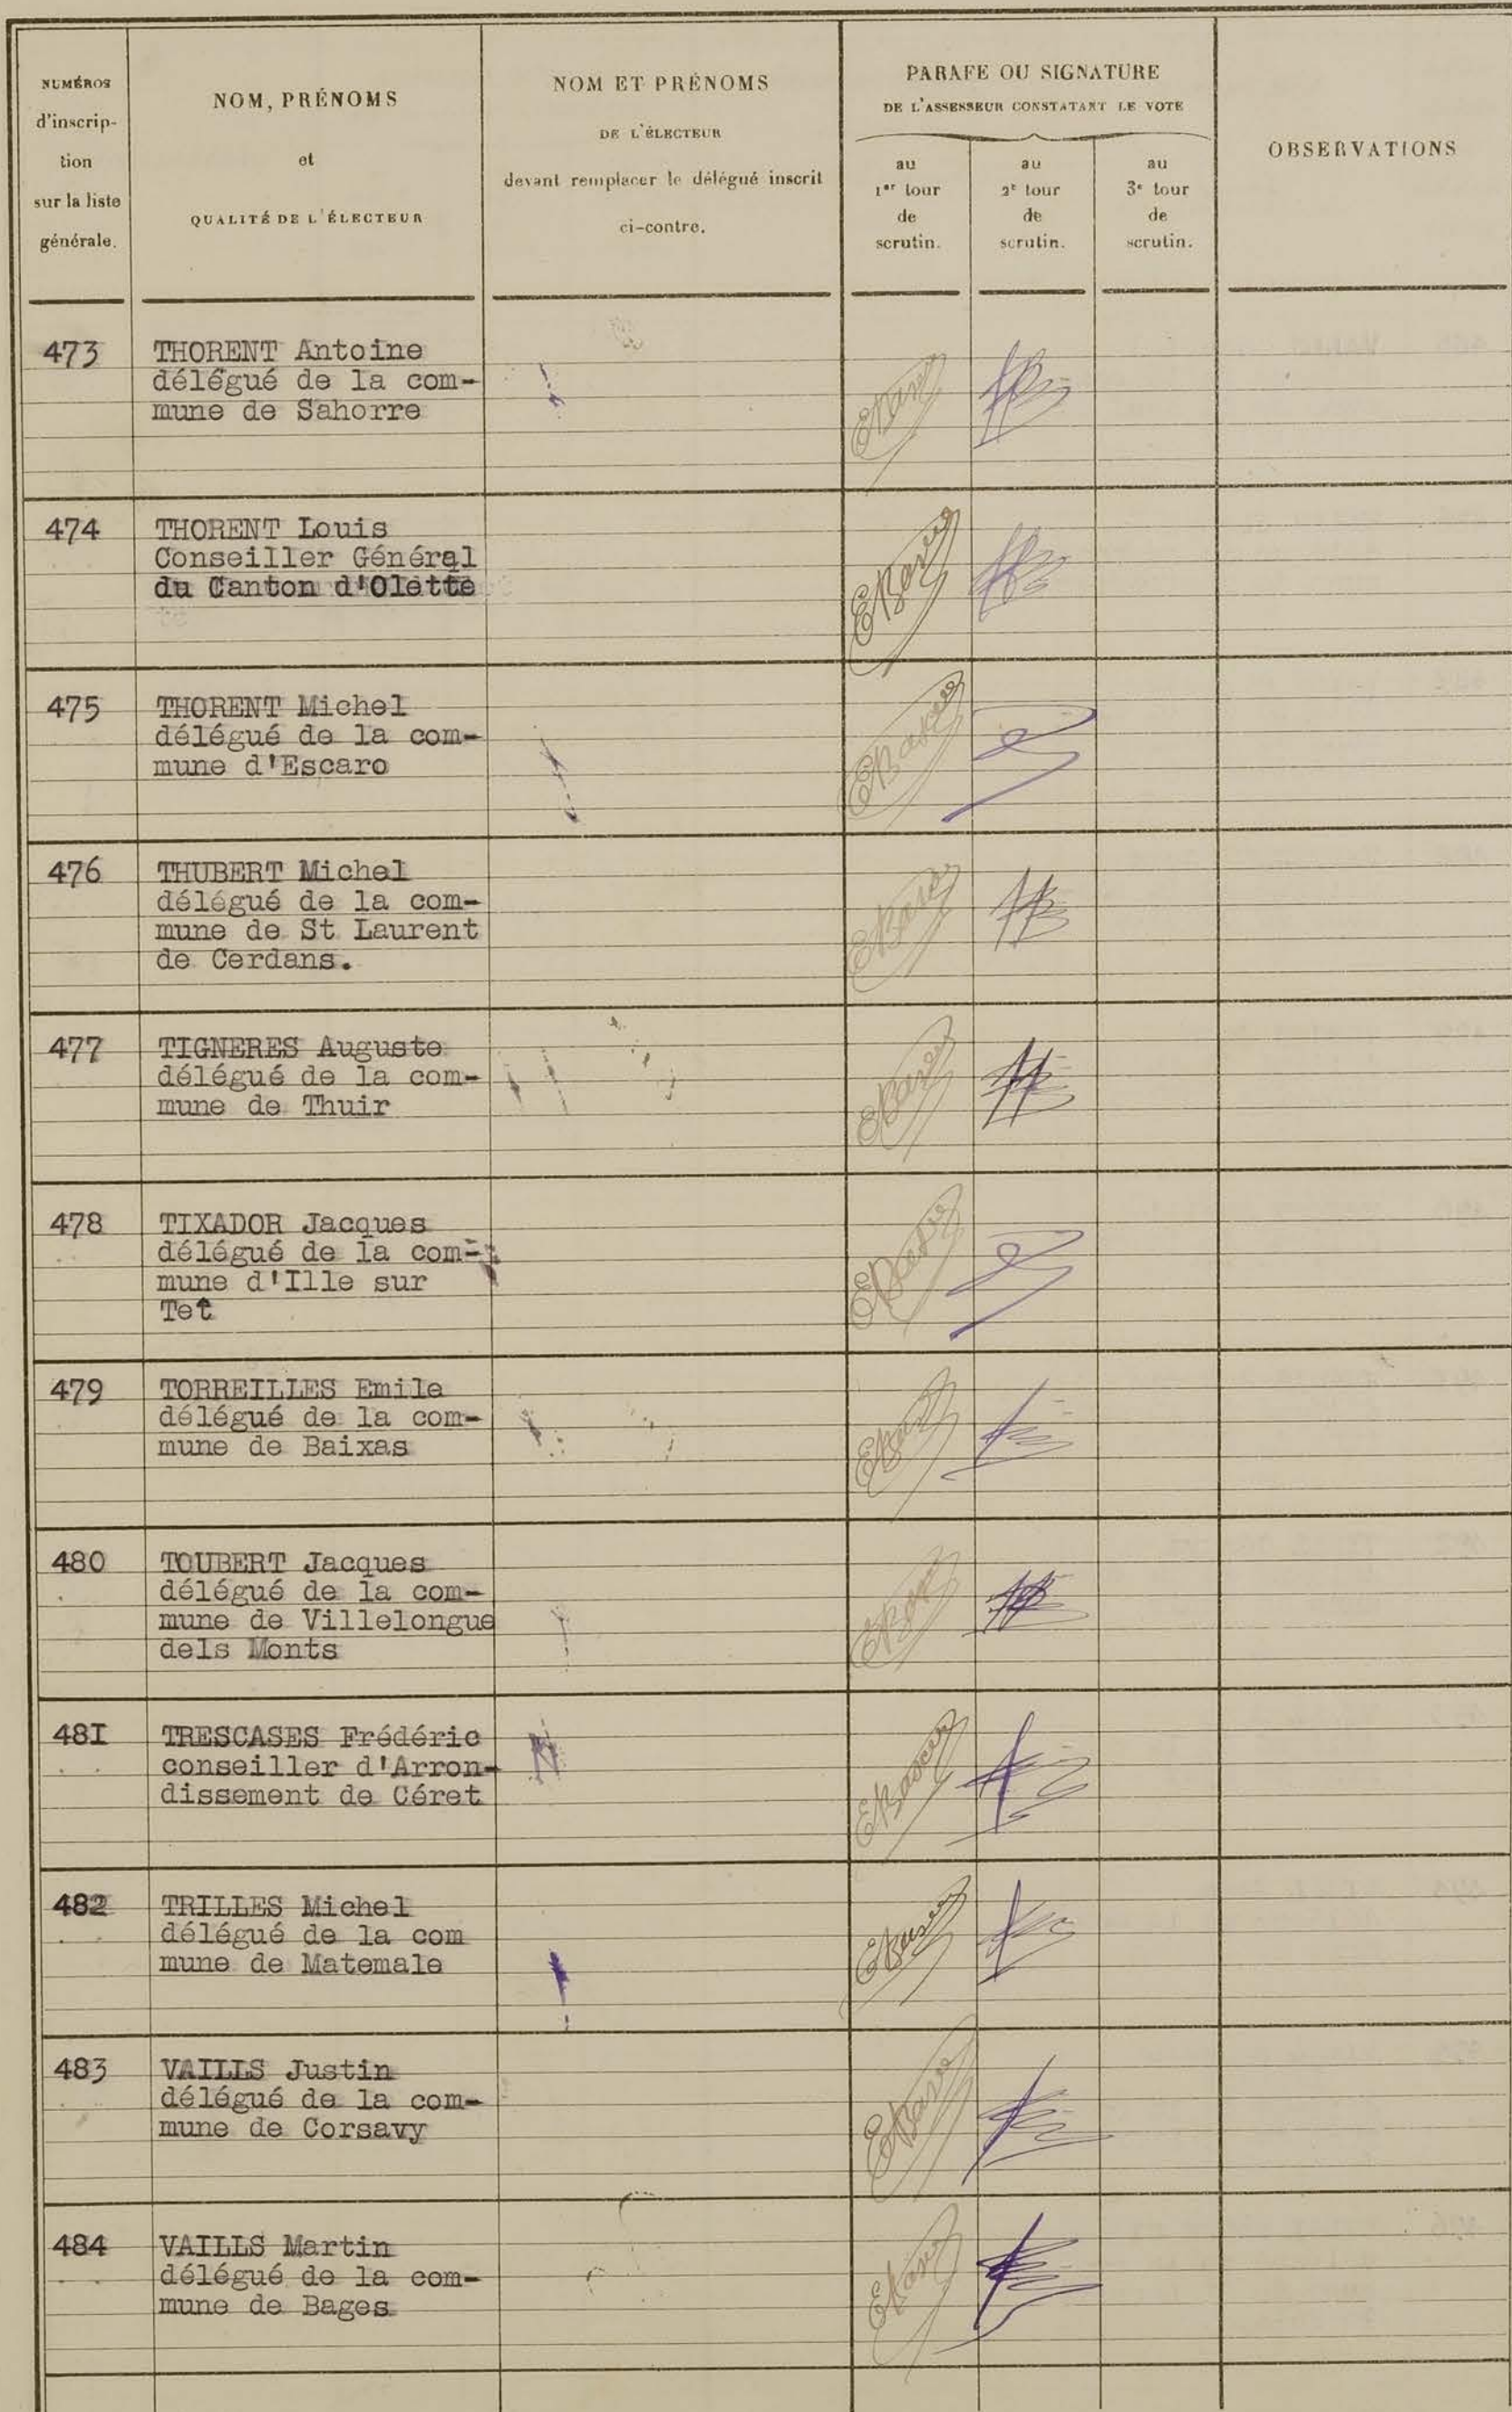 NUMÉROS
d'inscrip-
tion
sur la liste
générale.
NOM, PRÉNOMS
et
QUALITÉ DE L'ÉLECTEUR
NOM ET PRÉNOMS
DE L'ÉLECTEUR
devant remplacer le délégué inscrit
ci-contre.
PARAFE OU SIGNATURE
DE L'ASSESSEUR CONSTATANT LE VOTE
au
1er tour
de
scrutin.
au
2e tour
de
scrutin.
au
3e tour
de
scrutin.
OBSERVATIONS
473 THORENT Antoine
délégué de la com-
mune de Sahorre
474 THORENT Louis
Conseiller Général
du Canton d'Olette
475 THORENT Michel
délégué de la com-
mune d'Escaro
476 THUBERT Michel
délégué de la com-
mune de St Laurent
de Cerdans.
477 TIGNERES Auguste
délégué de la com-
mune de Thuir
478 TIXADOR Jacques
délégué de la com-
mune d'Ille sur
Tet
479 TORREILLES Emile
délégué de la com-
mune de Baixas
480 TOUBERT Jacques
délégué de la com-
mune de Villelongue
dels Monts
48I TRESCASES Frédéric
conseiller d'Arron-
dissement de Céret
482 TRILLES Michel
délégué de la com
mune de Matemale
483 VAILLS Justin
délégué de la com-
mune de Corsavy
484 VAILLS Martin
délégué de la com-
mune de Bages